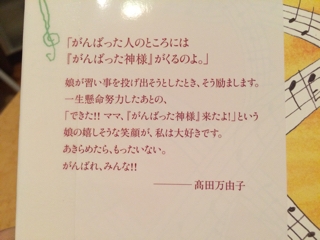 「がんばった人のところには
『がんばった神様』がくるのよ。」
娘が習い事を投げ出そうとしたとき、そう励まします。
一生懸命努力したあとの、
「できた!! ママ、『がんばった神様』来たよ!」という
娘の嬉しそうな笑顔が、私は大好きです。
あきらめたら、もったいない。
がんばれ、みんな!!
───髙田万由子